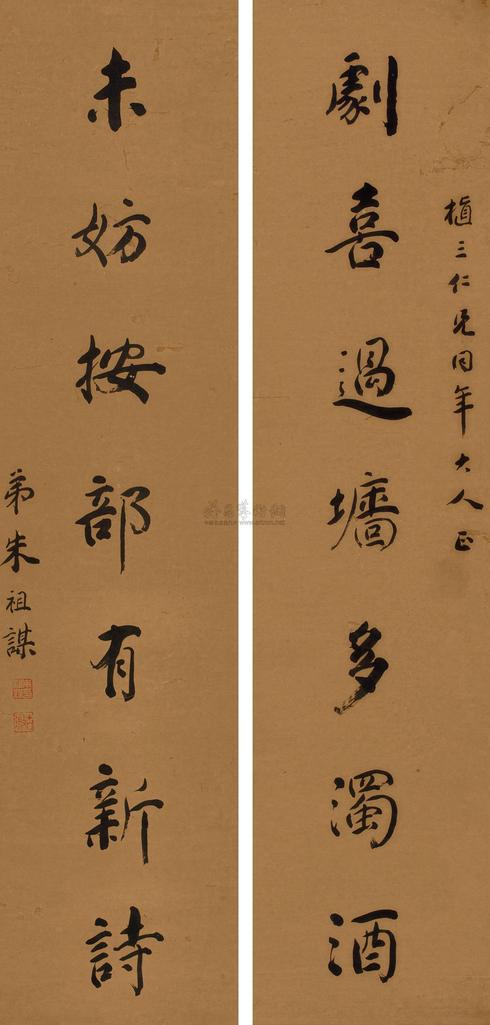 植三仁兄同年大人正
劇喜過墻多濁酒
未妨按部有新詩
弟朱祖謀